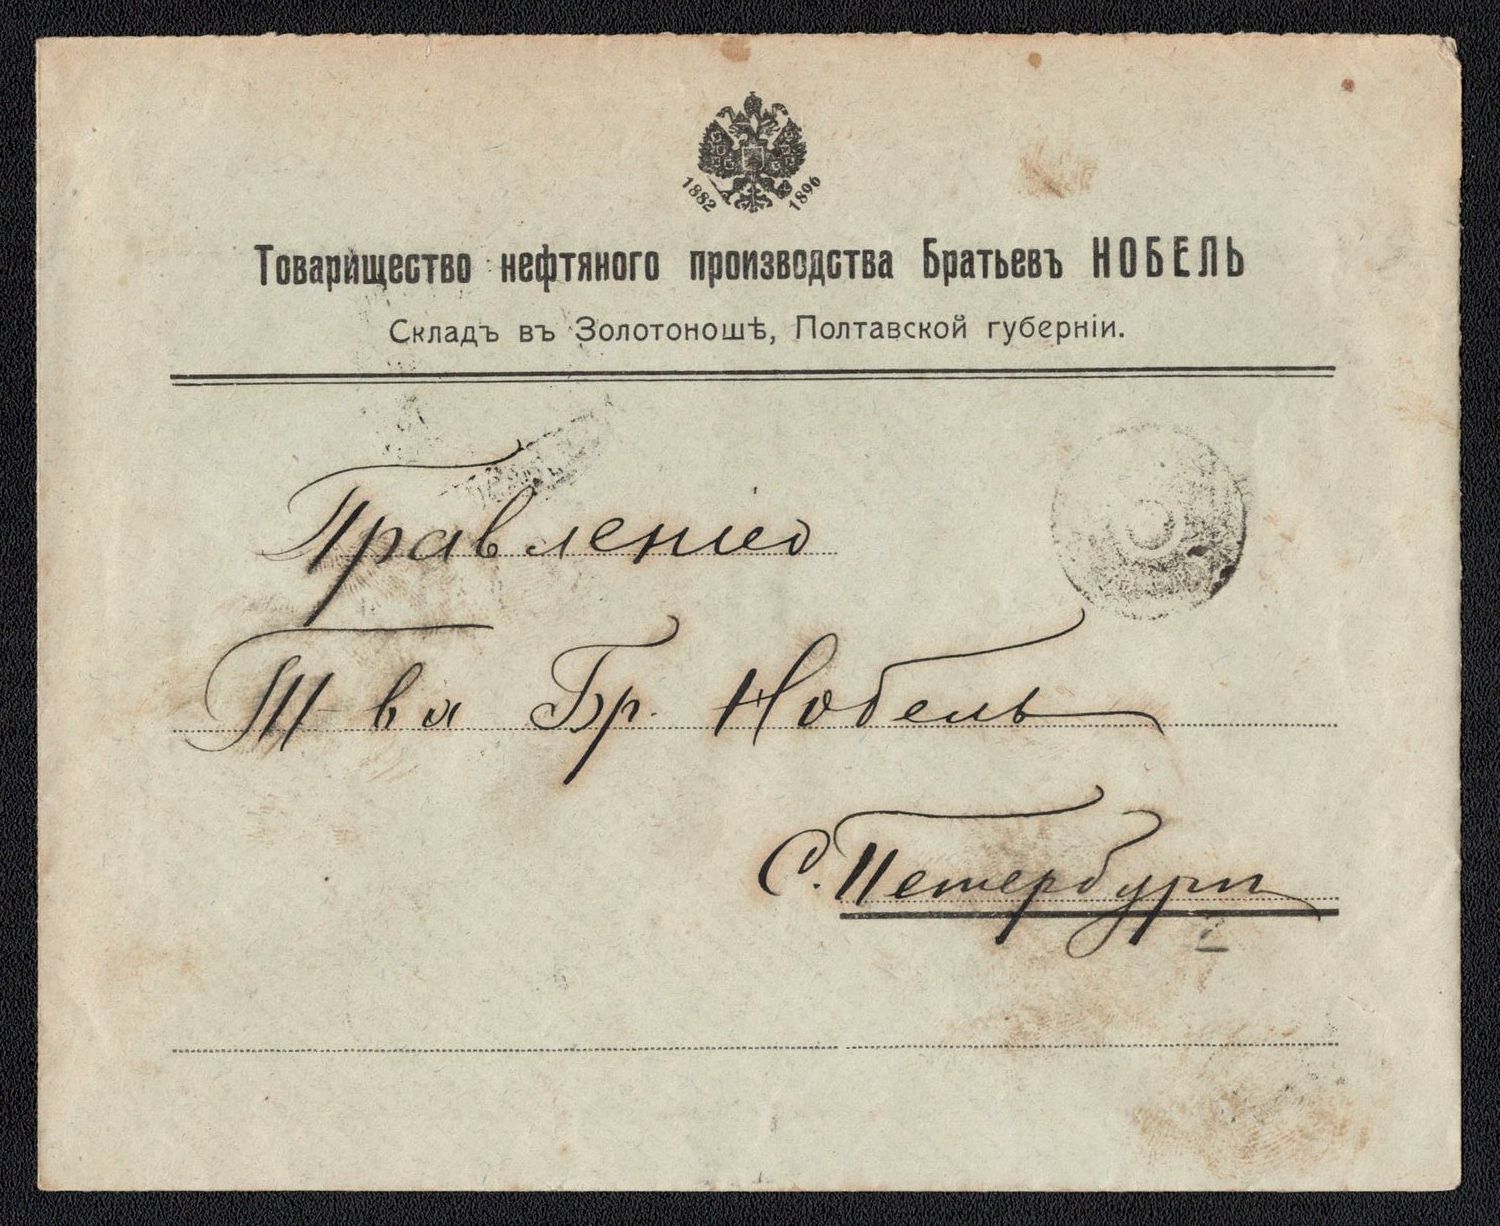 1882 1896
Товарищество нефтяного производства Братьевъ НОБЕЛЬ
Складъ въ Золотоношѣ, Полтавской губерніи.
Правленіе
Т-ва Бр. Нобель
С. Петербург